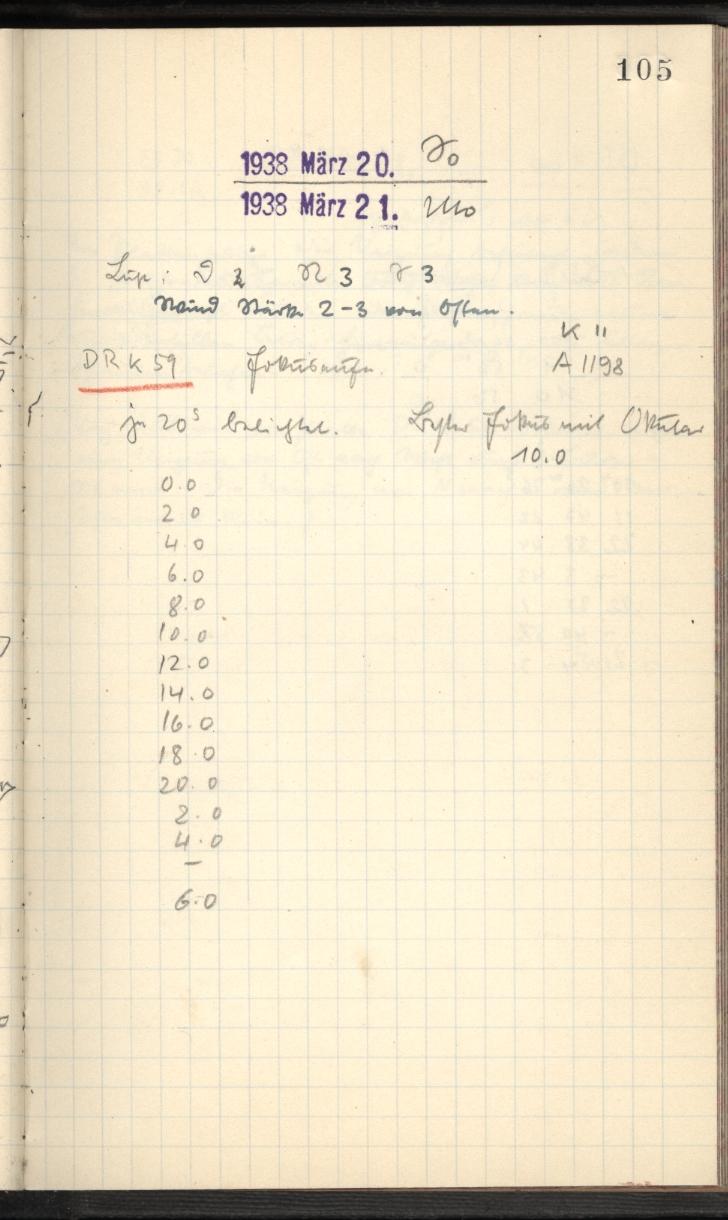 105
1938 März 20. So
1938 März 21. Mo
Luft: D 2 R 3 S 3
Wind Stärke 2-3 von Osten.
K 11
DRK 59 Fokusaufn. A 1198
je 20s belichtet. Bester Fokus mit Okular
10.0
0.0
2.0
4.0
6.0
8.0
10.0
12.0
14.0
16.0
18.0
20.0
2.0
4.0
–
6.0